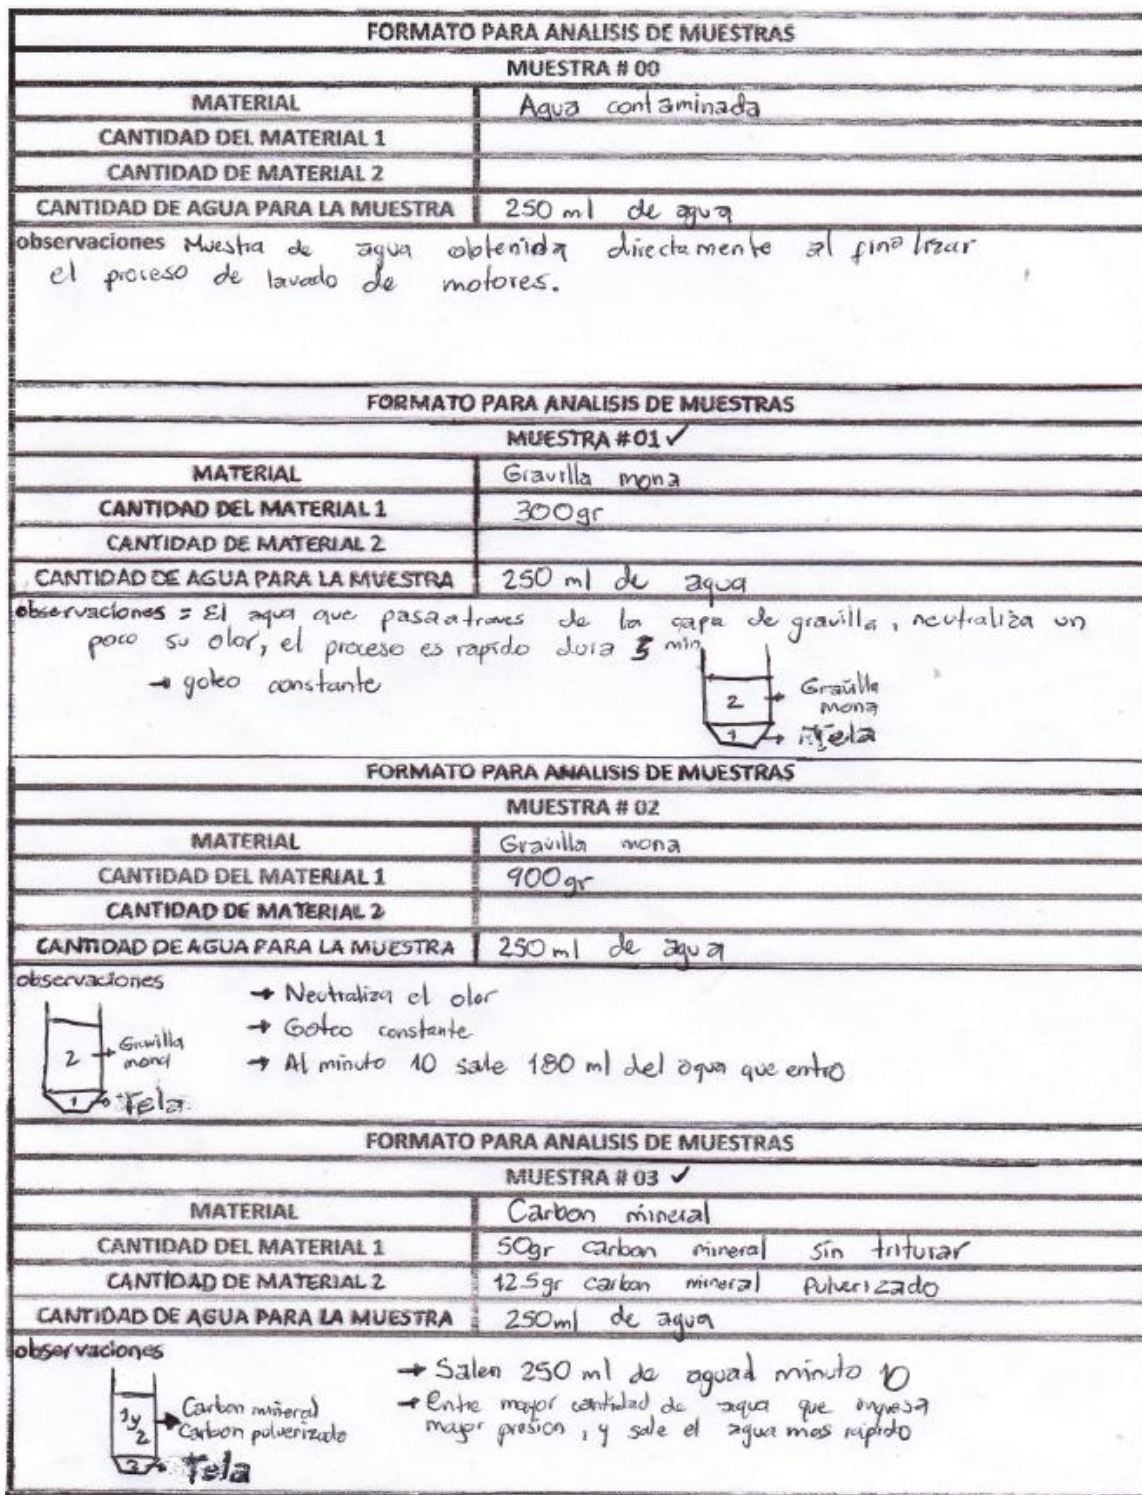 FORMATO PARA ANALISIS DE MUESTRAS
MUESTRA # 00
MATERIAL Agua contaminada
CANTIDAD DEL MATERIAL 1
CANTIDAD DE MATERIAL 2
CANTIDAD DE AGUA PARA LA MUESTRA 250 ml de agua
observaciones Muestra de agua obtenida directamente al finalizar
el proceso de lavado de motores.
FORMATO PARA ANALISIS DE MUESTRAS
MUESTRA # 01 ✓
MATERIAL Gravilla mona
CANTIDAD DEL MATERIAL 1 300gr
CANTIDAD DE MATERIAL 2
CANTIDAD DE AGUA PARA LA MUESTRA 250 ml de agua
observaciones = El agua que pasa a traves de la capa de gravilla, neutraliza un
poco su olor, el proceso es rapido dura 5 min
→ goteo constante
2 → Gravilla
mona
1 → Tela
FORMATO PARA ANALISIS DE MUESTRAS
MUESTRA # 02
MATERIAL Gravilla mona
CANTIDAD DEL MATERIAL 1 900gr
CANTIDAD DE MATERIAL 2
CANTIDAD DE AGUA PARA LA MUESTRA 250 ml de agua
observaciones
→ Neutraliza el olor
→ Goteo constante
→ Al minuto 10 sale 180 ml del agua que entro
2 → Gravilla
mona
1 → Tela
FORMATO PARA ANALISIS DE MUESTRAS
MUESTRA # 03 ✓
MATERIAL Carbon mineral
CANTIDAD DEL MATERIAL 1 50gr carbon mineral sin triturar
CANTIDAD DE MATERIAL 2 125gr carbon mineral Pulverizado
CANTIDAD DE AGUA PARA LA MUESTRA 250ml de agua
observaciones
→ Salen 250 ml de agua al minuto 10
→ Entre mayor cantidad de agua que ingresa
mayor presion, y sale el agua mas rapido
1 y 2 → Carbon mineral
Carbon pulverizado
3 → Tela